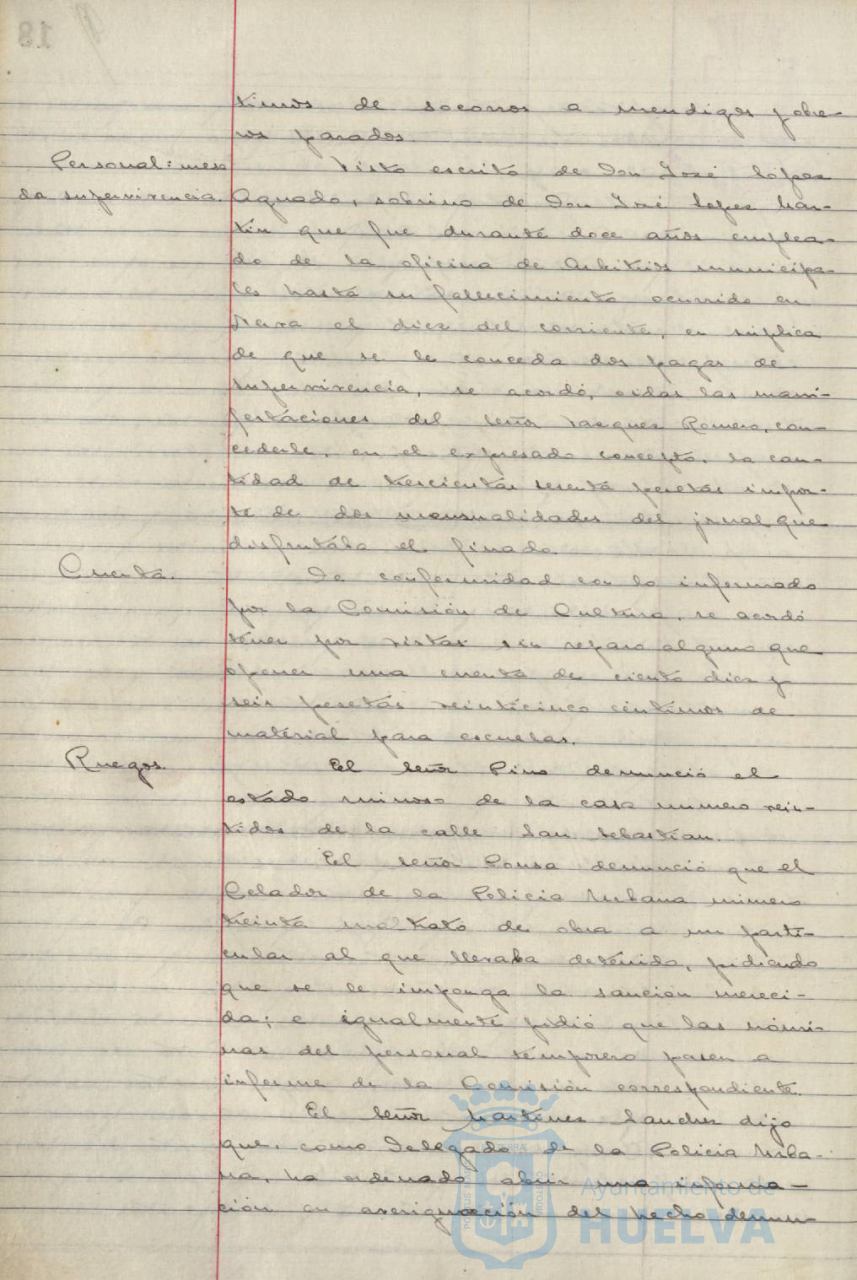 timos de socorros a mendigos y obre-
ros parados.
Personal: mesa
da supervivencia.
Visto escrito de Don José López
Aguado, sobrino de Don José López Mar-
tín que fue durante doce años emplea-
do de la oficina de Arbitrios municipa-
les hasta su fallecimiento ocurrido en
Nerva el diez del corriente, en súplica
de que se le conceda dos pagas de
supervivencia, se acordó, oidas las mani-
festaciones del Señor Vazquez Romero, con-
cederle, en el expresado concepto, la can-
tidad de trescientas sesenta pesetas impor-
te de dos mensualidades del jornal que
disfrutaba el finado.
Cuenta.
De conformidad con lo informado
por la Comisión de Cultura, se acordó
tener por vistas sin reparo alguno que
oponer una cuenta de ciento diez y
seis pesetas veinticinco céntimos de
material para escuelas.
Ruegos.
El Señor Pino denunció el
estado ruinoso de la casa numero vein-
tidos de la calle San Sebastian.
El Señor Ponsa denunció que el
Celador de la Policia Urbana número
treinta maltrató de obra a un parti-
cular al que llevaba detenido, pidiendo
que se le imponga la sanción mereci-
da; e igualmente pidió que las nómi-
nas del personal temporero pasen a
informe de la Comisión correspondiente.
El Señor Martínez Sanchez dijo
que, como Delegado de la Policia Urba-
na, ha ordenado abrir una informa-
ción en averiguación del hecho denun-
Ayuntamiento de
HUELVA